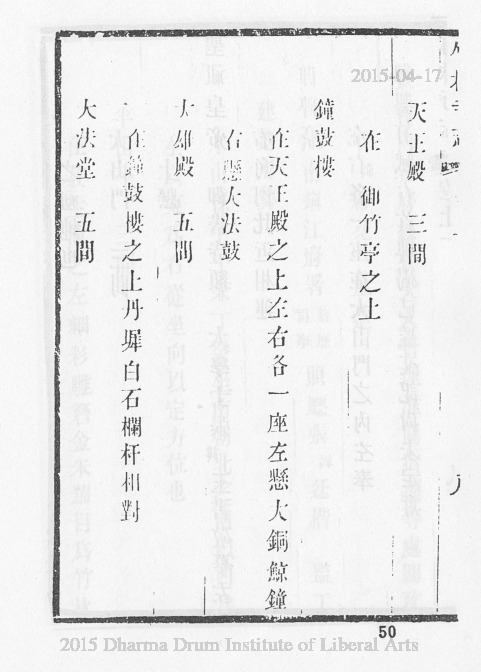 天王殿　三間
在　御竹亭之上
鐘鼓樓
在天王殿之上左右各一座左懸大銅鯨鐘
右懸大法鼓
大雄殿　五間
在鐘鼓樓之上丹墀白石欄杆相對
大法堂　五間
50
2015-04-17
2015 Dharma Drum Institute of Liberal Arts